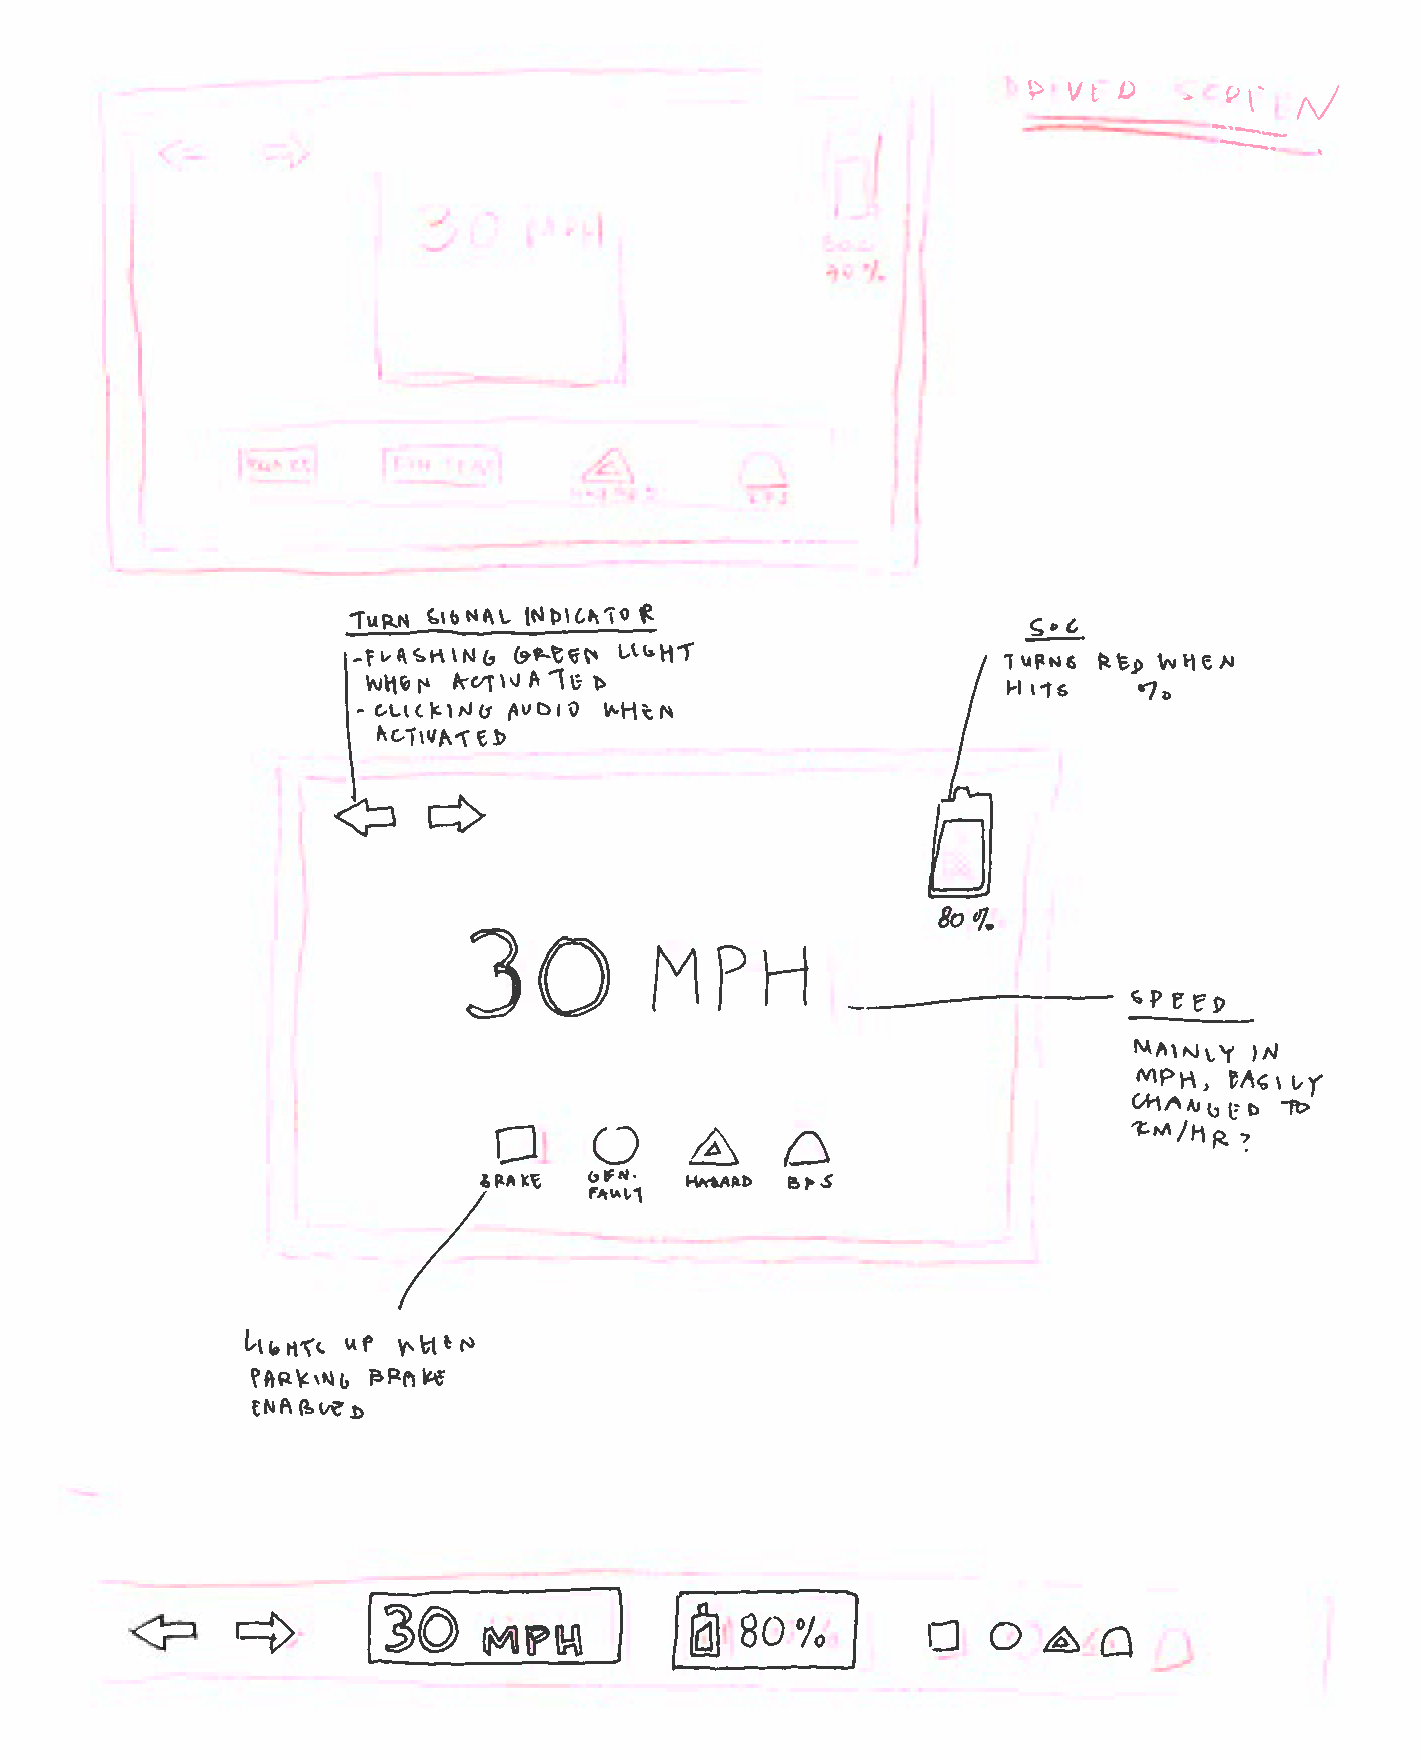 DRIVER SCREEN
30 MPH
SOC
BRAKE
TURN SIGNAL INDICATOR
-FLASHING GREEN LIGHT
WHEN ACTIVATED
- CLICKING AUDIO WHEN
ACTIVATED
SOC
TURNS RED WHEN
HITS %
80%
30 MPH
SPEED
MAINLY IN
MPH, EASILY
CHANGED TO
KM/HR?
BRAKE
GEN.
FAULT
HAZARD
BPS
LIGHTS UP WHEN
PARKING BRAKE
ENABLED
30 MPH
80%